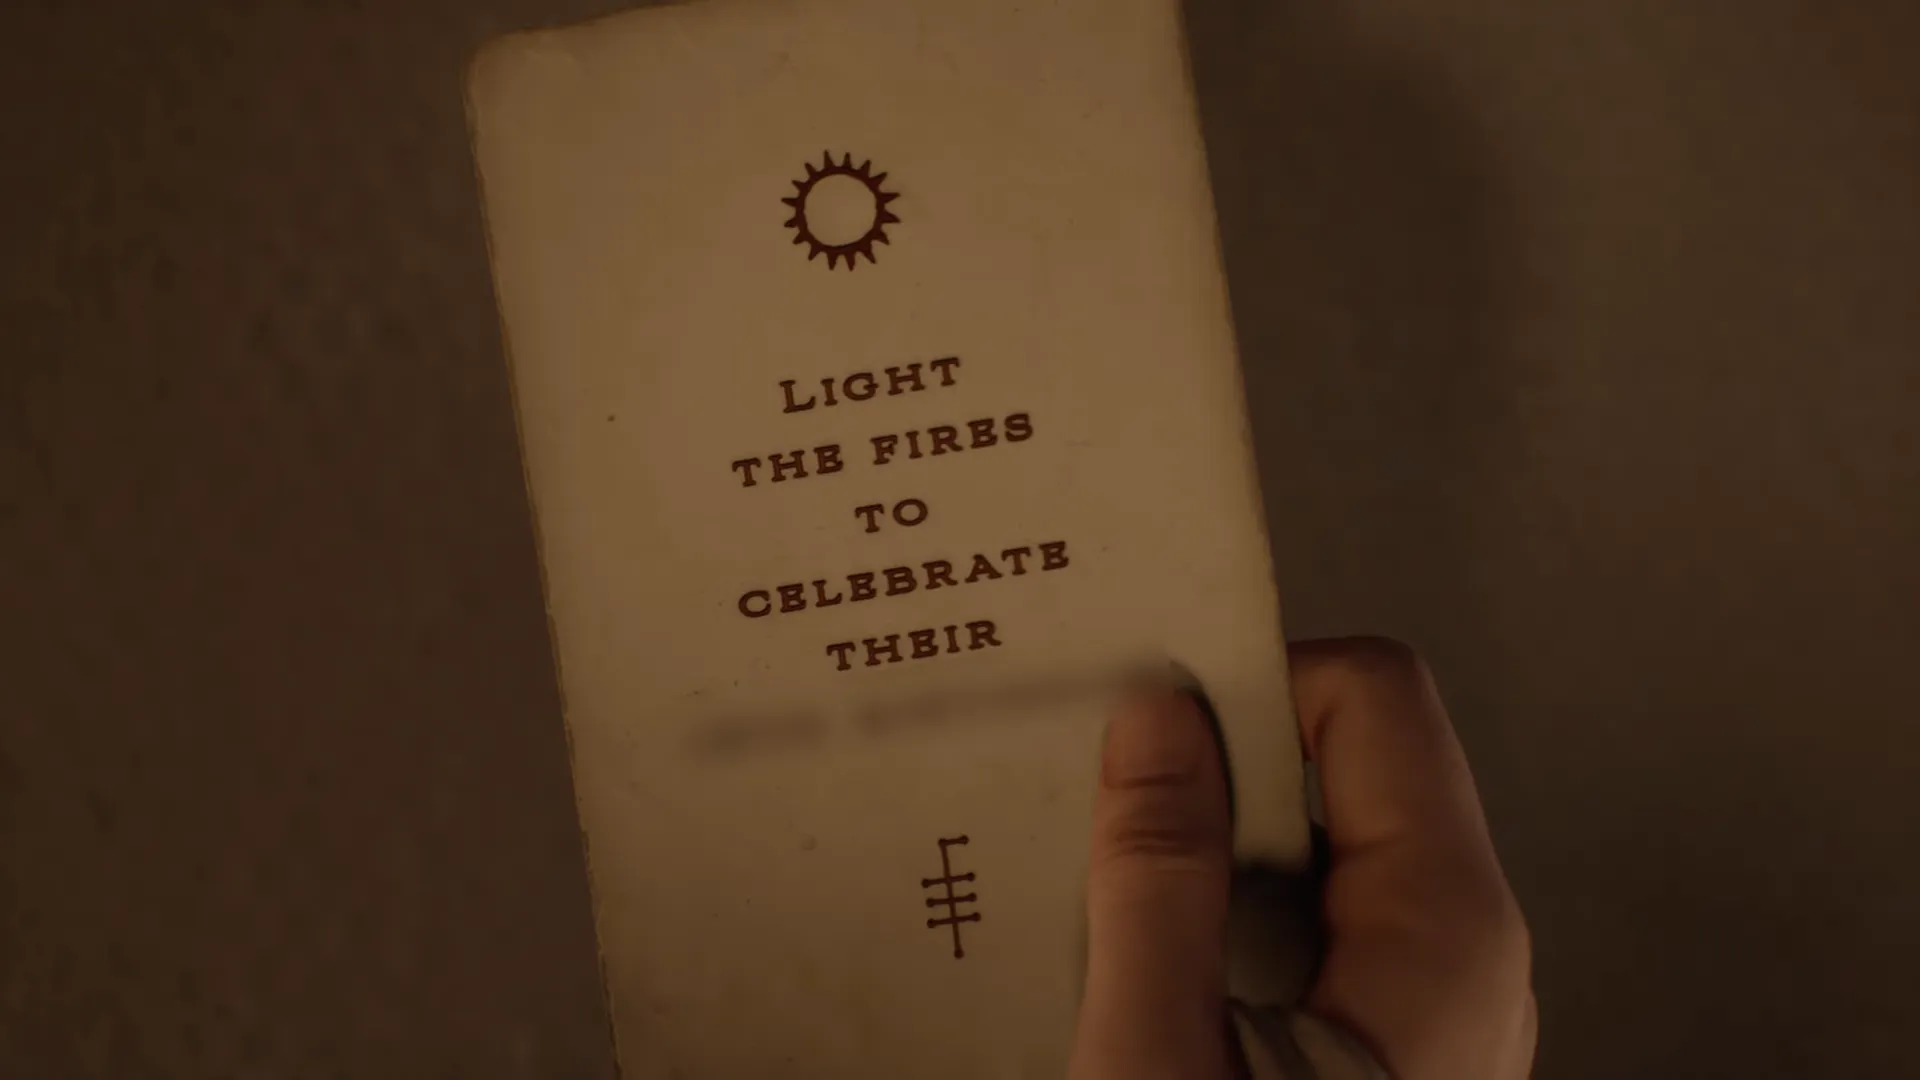 LIGHT
THE FIRES
TO
CELEBRATE
THEIR